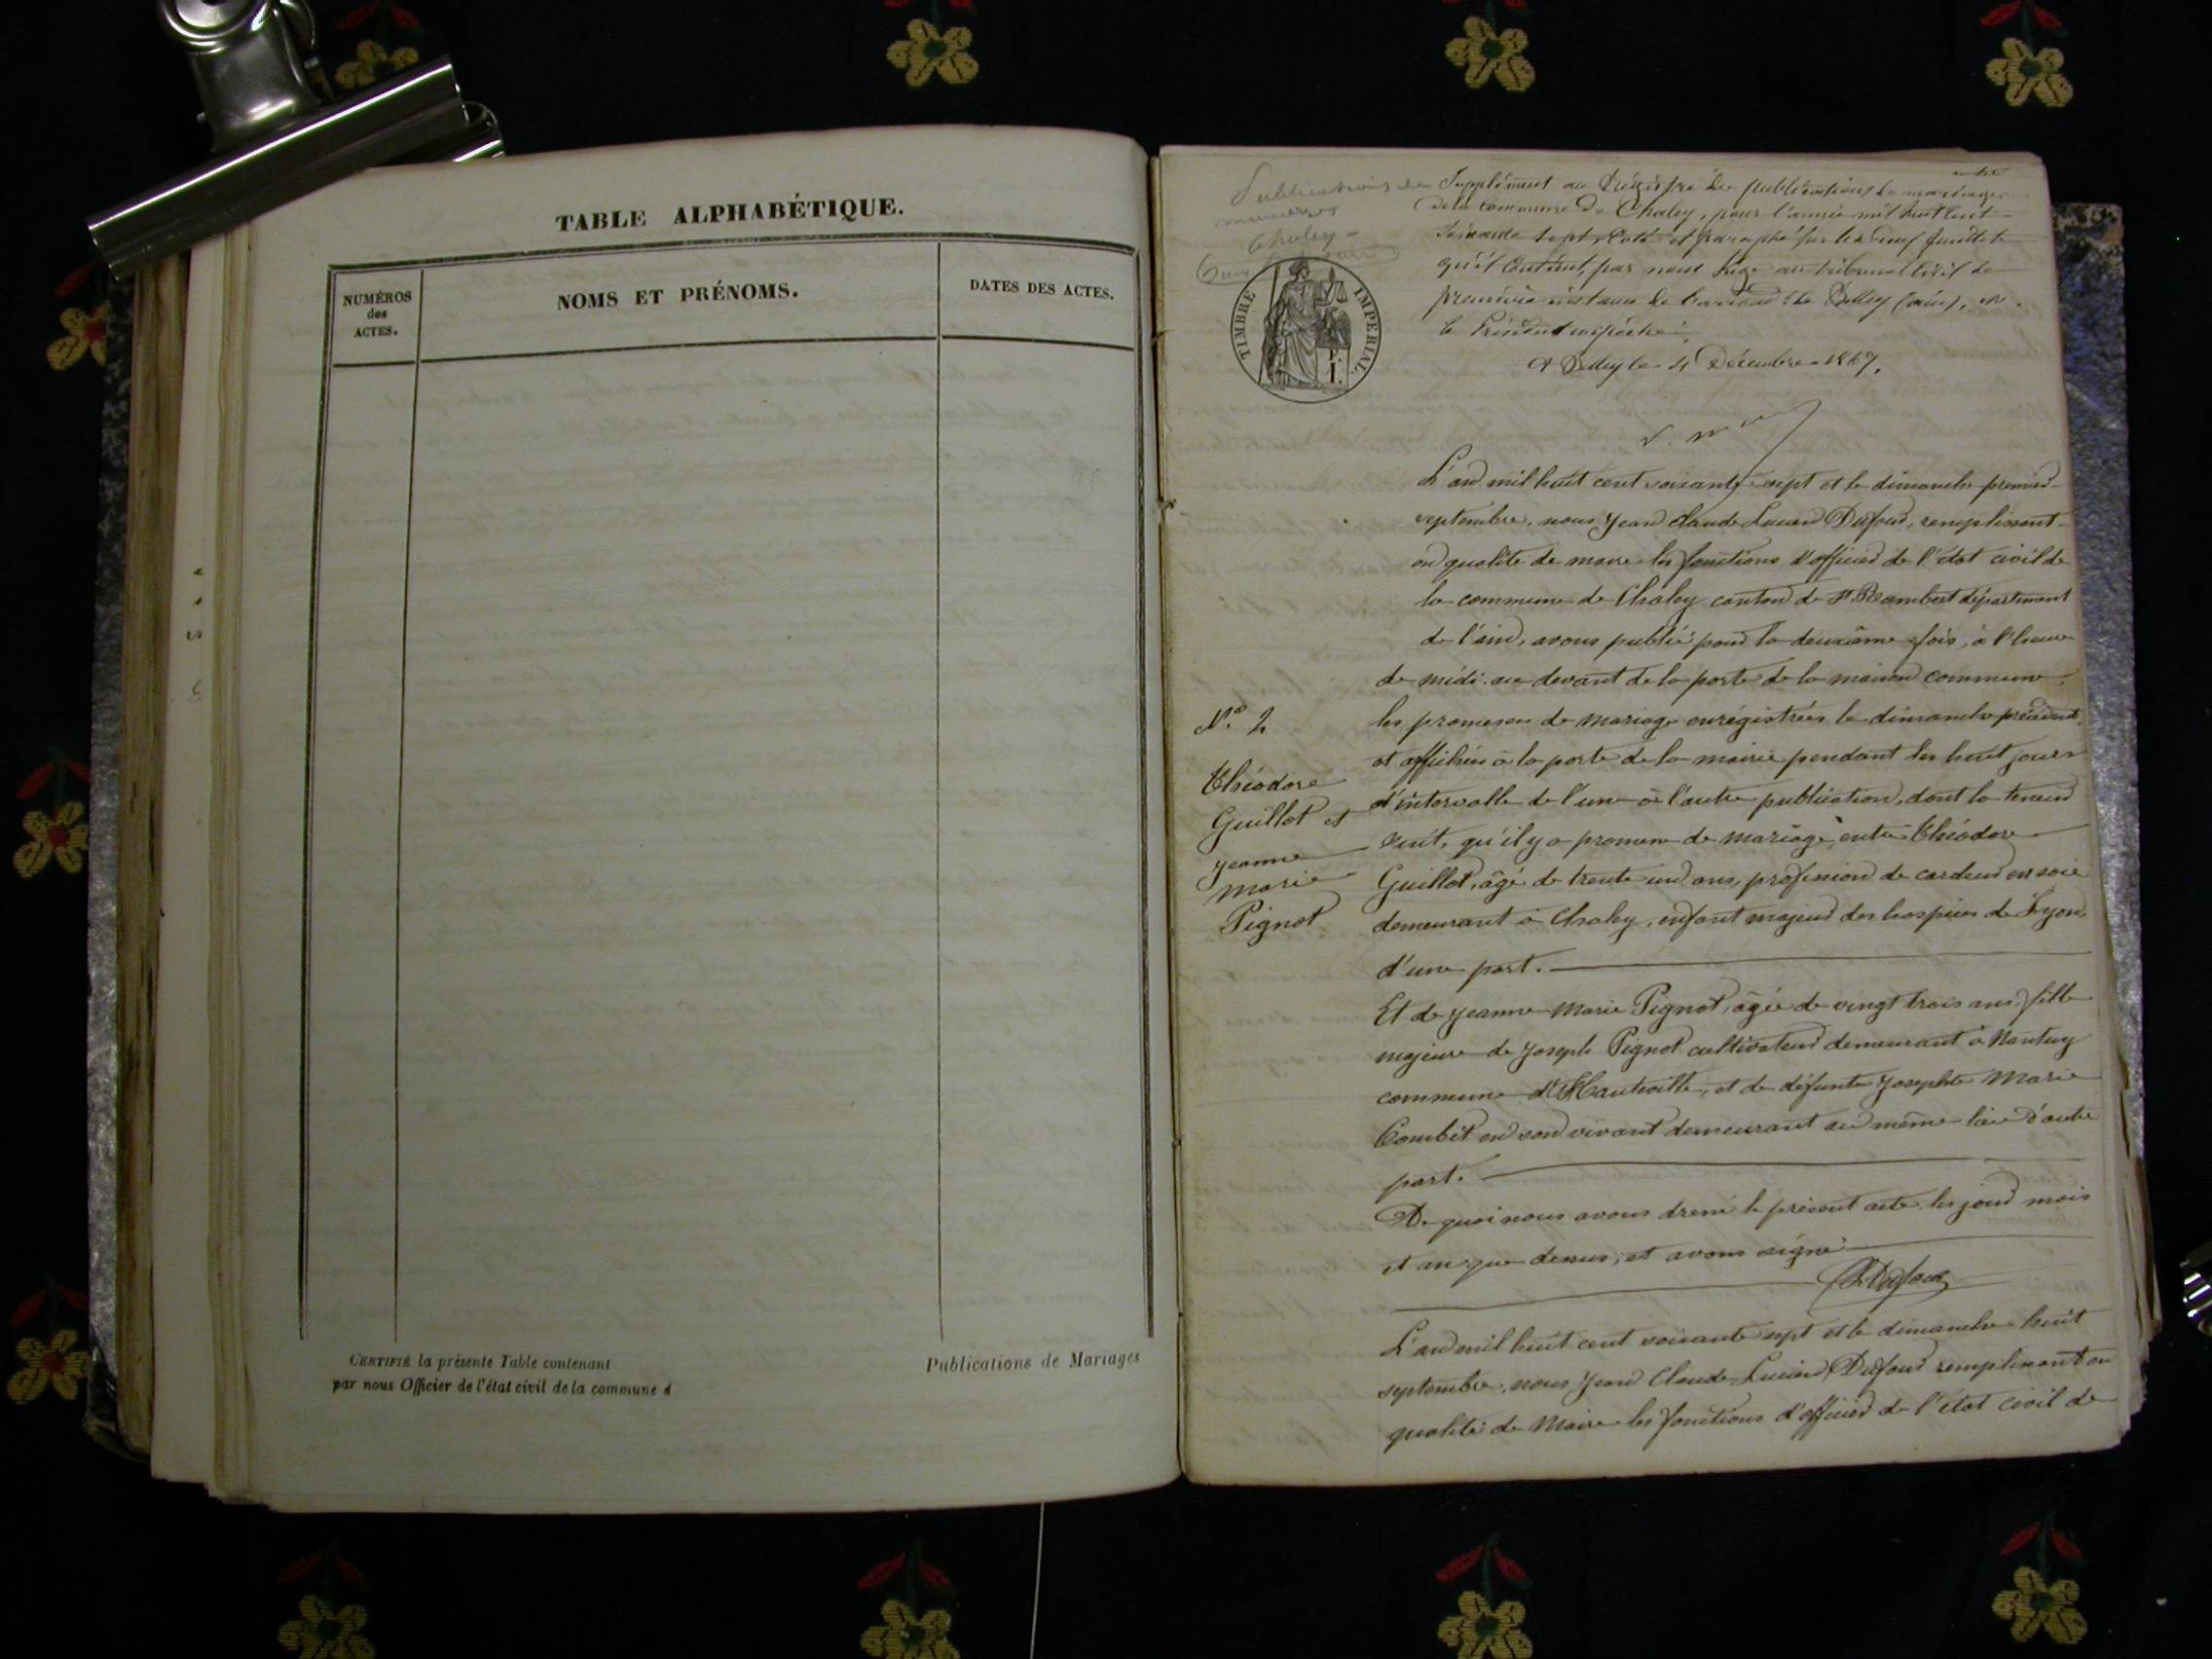 TABLE ALPHABÉTIQUE.
NUMÉROS
des
ACTES.
NOMS ET PRÉNOMS.
DATES DES ACTES.
CERTIFIÉ la présente Table contenant
par nous Officier de l'état civil de la commune d
Publications de Mariages
Publications de
Chaley
Supplément au Régistre des publications de mariages
de la Commune de Chaley, pour l'année mil huit cent
soixante sept, Coté et paraphé sur les neuf feuillets
qu'il contient, par nous Juge au tribunal Civil de
première instance de Belley (ain),
le Président empêché.
A Belley le 4 Décembre 1867.
TIMBRE IMPÉRIAL
L'an mil huit cent soixante sept et le dimanche premier
septembre, nous Jean Claude Lucien Dufour, remplissant
en qualité de maire les fonctions d'officier de l'état civil de
la commune de Chaley canton de St. Rambert département
de l'ain, avons publié pour la deuxième fois, à l'heure
de midi au devant de la porte de la maison commune
N.o 2
Théodore
Guillot et
Jeanne
Marie
Pignot
les promesses de mariage enrégistrées le dimanche précédent,
et affichées à la porte de la mairie pendant les huit jours
d'intervalle de l'une à l'autre publication, dont la teneur
suit, qu'il y a promesse de mariage, entre Théodore
Guillot, âgé de trente un ans, profession de cardeur en soie
demeurant à Chaley, enfant majeur des hospices de Lyon,
d'une part.
Et de Jeanne Marie Pignot, âgée de vingt trois ans, fille
majeure de Joseph Pignot cultivateur demeurant à Nantuy
commune d'Hauteville, et de défunte Josephte Marie
Combet en son vivant demeurant au même lieu d'autre
part.
De quoi nous avons dressé le présent acte les jour mois
et an que dessus, et avons signé
Dufour
L'an mil huit cent soixante sept et le dimanche huit
septembre, nous Jean Claude Lucien Dufour remplissant en
qualité de Maire les fonctions d'officier de l'état civil de